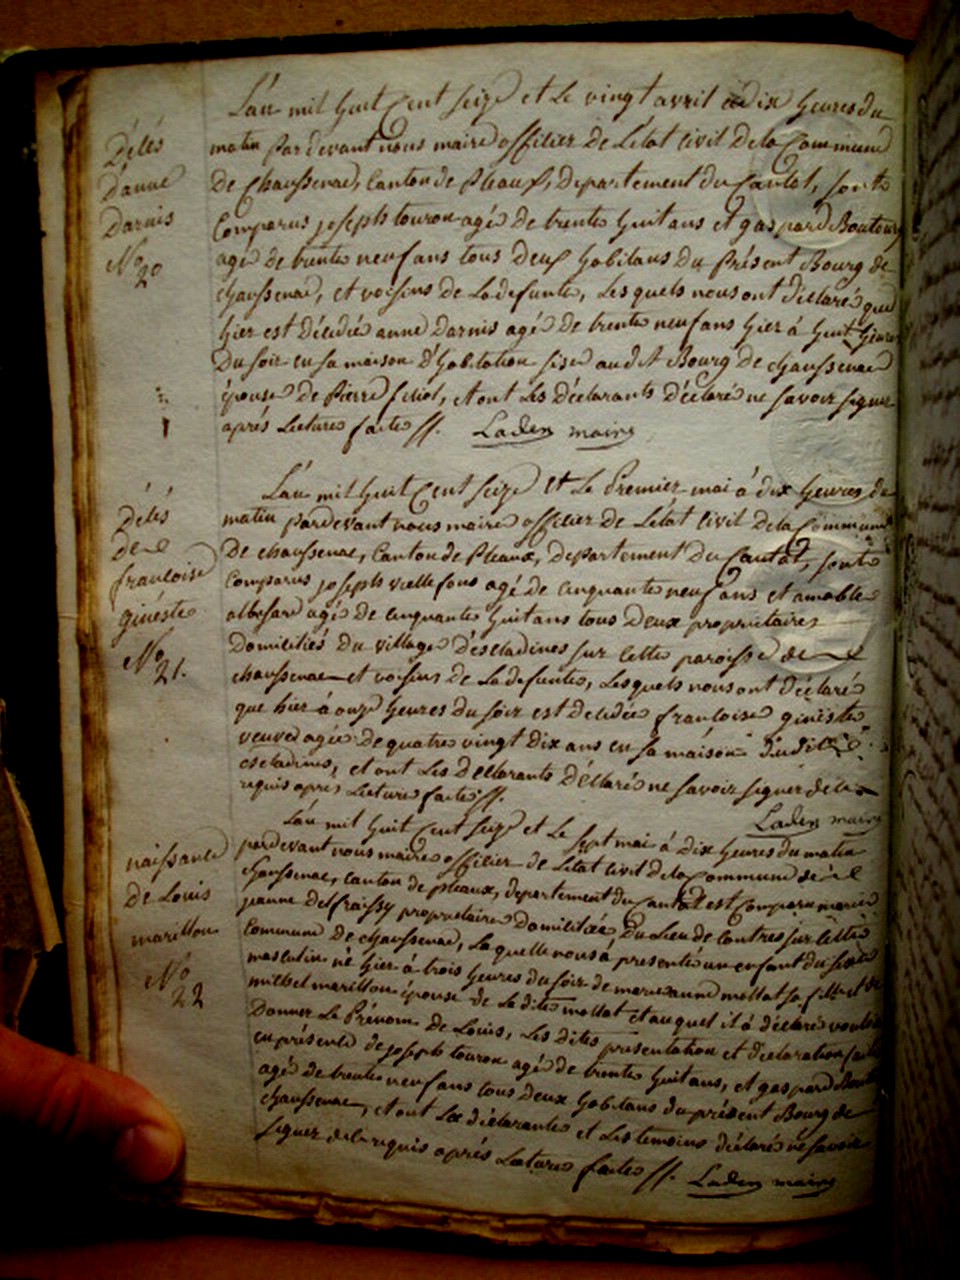 Décès
D'anne
Darnis
No
20
L'an mil huit Cent Seize et Le vingt avril à dix heures du
matin pardevant nous maire officier de L'état civil de la Commune
de Chaussenac, Canton de Pleaux, Departement du Cantal, sont
Comparus joseph touron agé de trente huit ans et gaspard
agé de trente neuf ans tous deux habitans du Présent Bourg de
chaussenac, et voisins de La defunte, Lesquels nous ont déclaré que
hier est décédée anne Darnis agée de trente neuf ans hier à huit heures
Du soir en sa maison D'habitation sise au dit Bourg de chaussenac
épouse de Pierre et ont Les Déclarants déclaré ne savoir signer
après Lecture faite //. Laden maire
Décès
De
francoise
gineste
No
21.
L'an mil huit Cent Seize et Le Premier mai à dix heures du
matin pardevant nous maire officier de L'état civil de la Commune
De chaussenac, Canton de Pleaux, Departement Du Cantal, sont
Comparus joseph vielle fons agé de cinquante neuf ans et amable
albessard agé de cinquante huit ans tous Deux propriétaires
Domiciliés Du village D'escladines sur cette paroisse de
chaussenac et voisins de La defunte, Lesquels nous ont déclaré
que hier à onze heures du soir est decedée francoise gineste
veuve agée de quatre vingt dix ans en sa maison dudit
escladines, et ont Les Déclarants Déclaré ne savoir signer de ce
requis après Lecture faite //.
Laden maire
naissance
De Louis
marillou
No
22
L'an mil huit Cent Seize et Le Sept mai à Dix heures du matin
pardevant nous maire officier de L'état civil de la Commune de
chaussenac, canton de pleaux, departement du Cantal est Comparu marie
jeanne delfraissy proprietaire Domiciliée Du Lieu de Contres sur cette
Commune de chaussenac, Laquelle nous à presenté un enfant du sexe
masculin né hier à trois heures du soir de marie anne mollat sa fille et de
michel marillou épouse de La dite mollat et auquel il à déclaré vouloir
Donner Le Prénom de Louis, Les dites presentation et declaration faite
en présence de joseph touron agé de trente huit ans, et gaspard
agé de trente neuf ans tous deux habitans du présent Bourg de
chaussenac, et ont La déclarante et Les temoins déclaré ne savoir
signer de ce requis après Lecture faite //. Laden maire